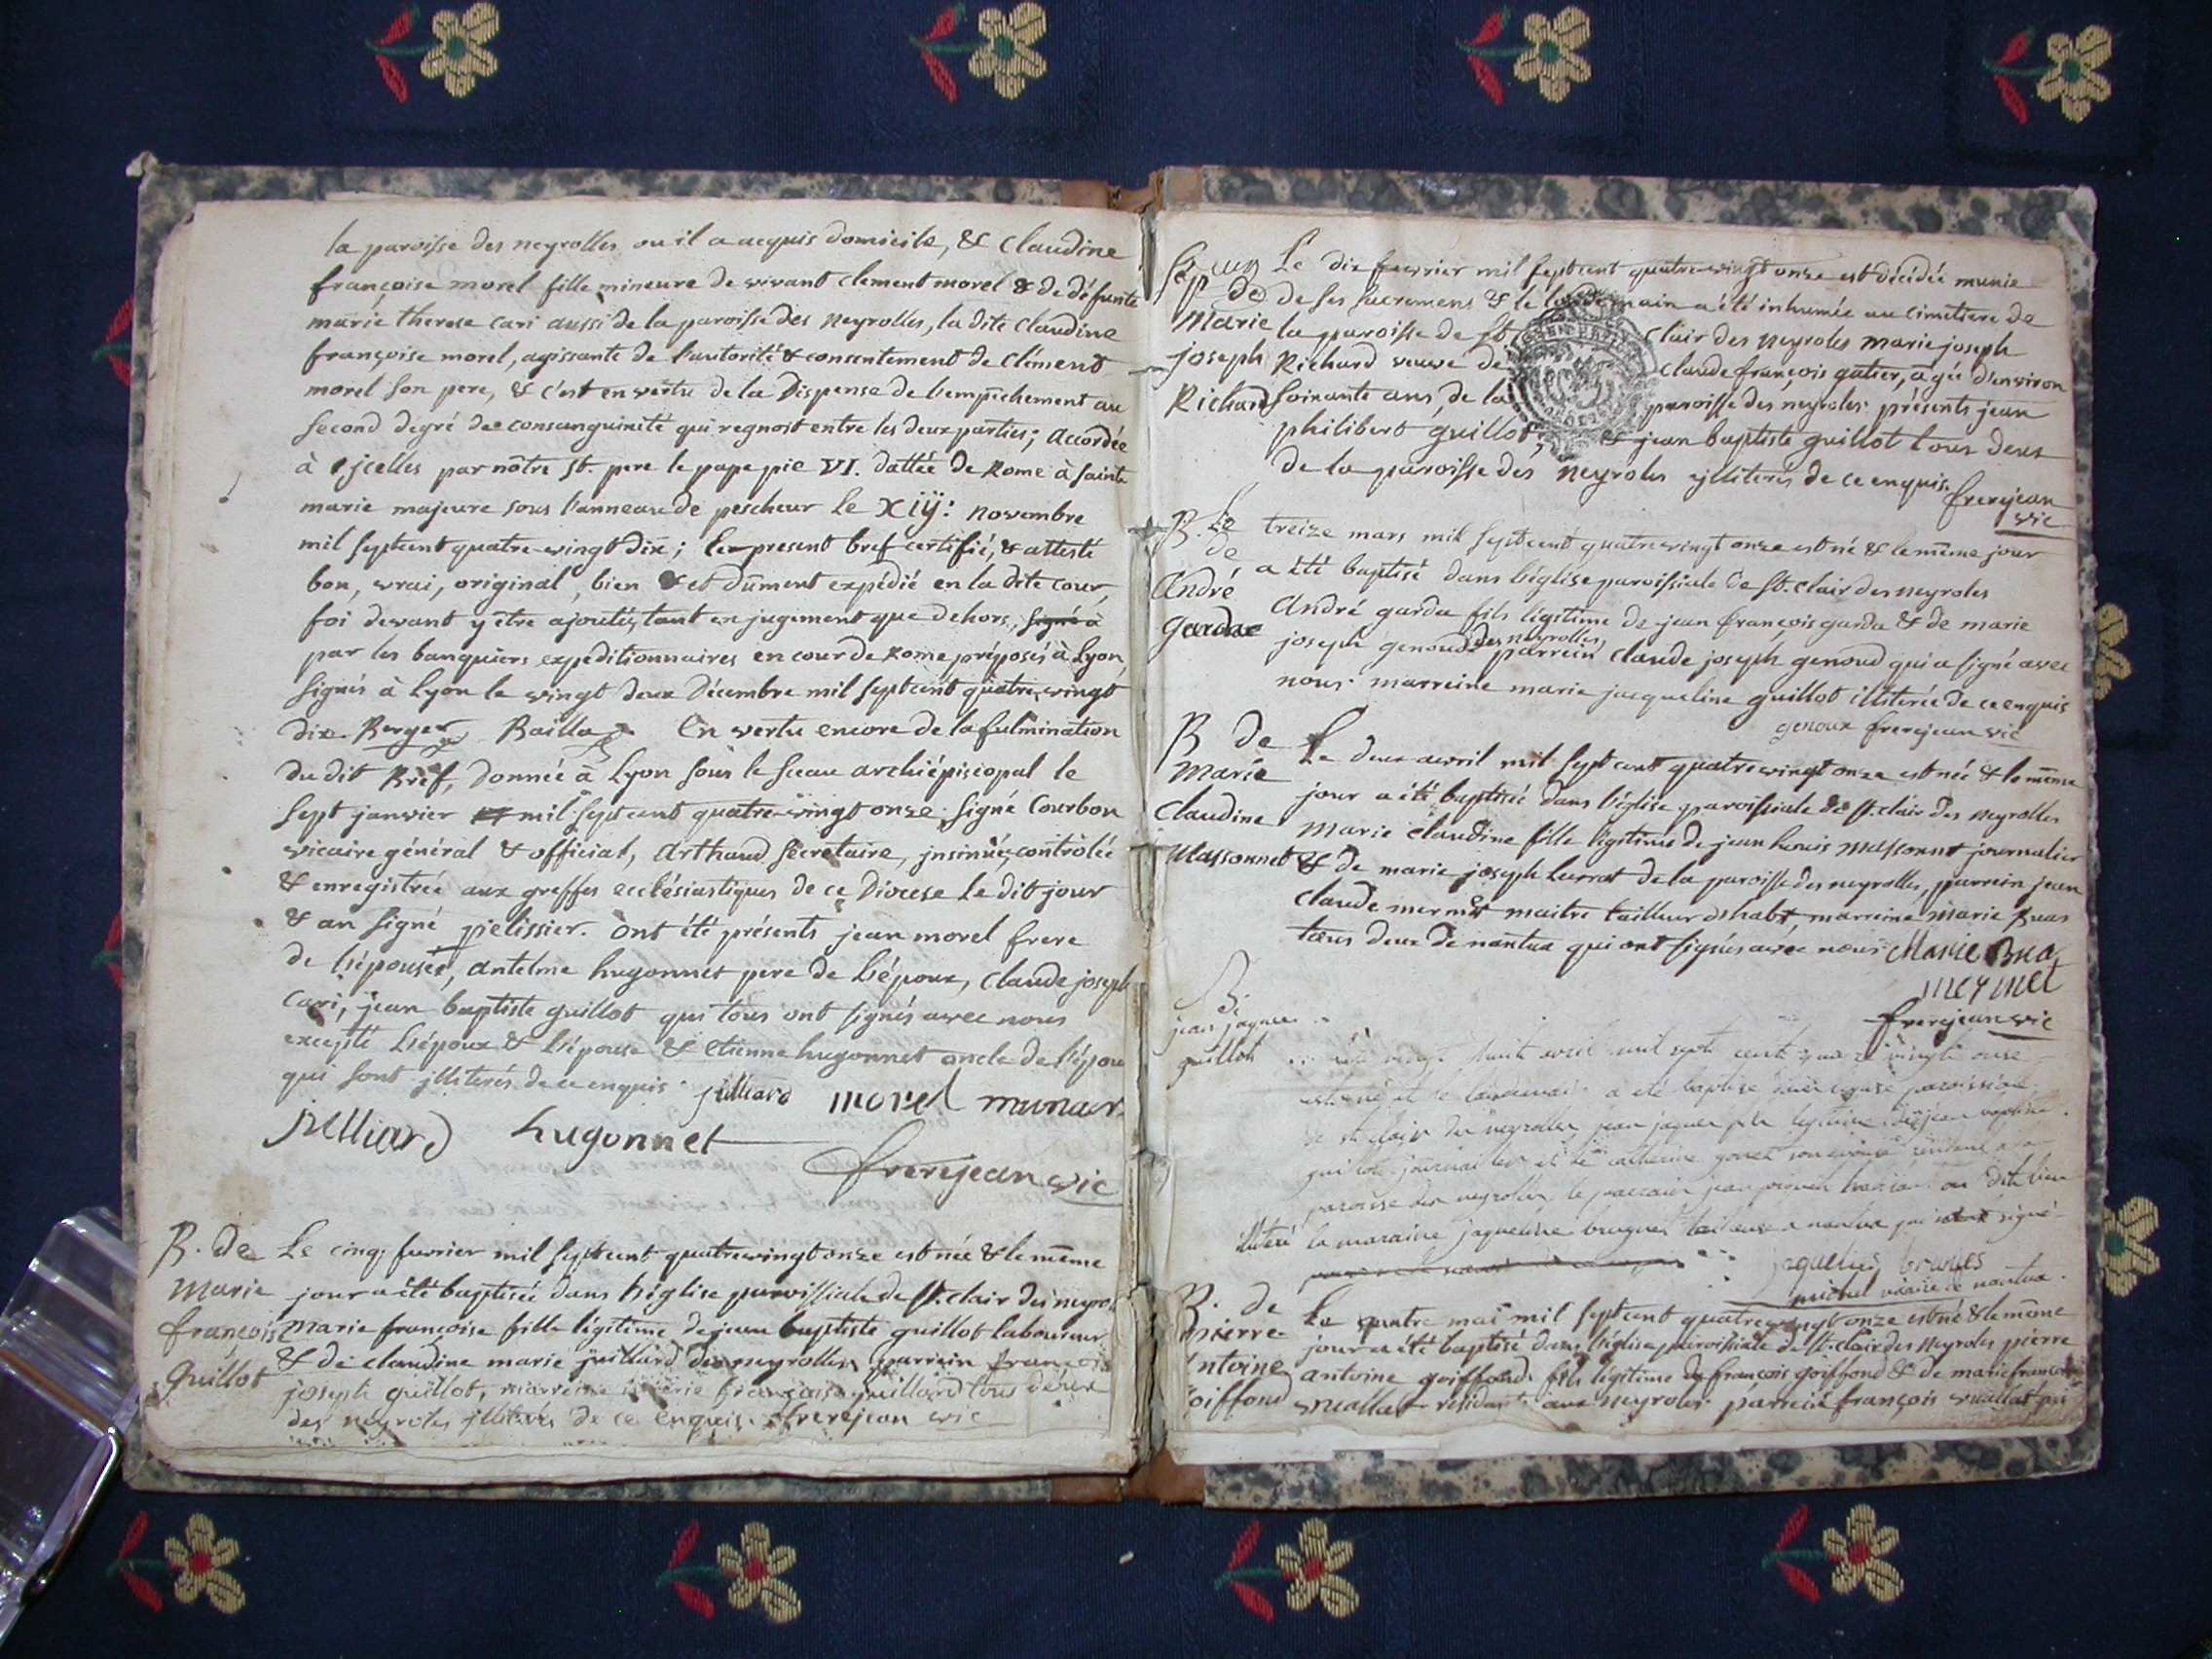 la paroisse des neyrolles ou il a acquis domicile, & claudine
françoise morel fille mineure de vivant clement morel & de défunte
marie therese cari aussi de la paroisse des neyrolles, la dite claudine
françoise morel, agissante de l'autorité & consentement de clément
morel son pere, & c'est en vertu de la Dispense de l'empêchement au
second degré de consanguinité qui regnoit entre les deux parties; accordée
à jcelles par nôtre st. pere le pape pie VI. dattée de Rome à sainte
marie majeure sous l'anneau de pescheur le xiij: novembre
mil septcent quatre-vingt dix; le present bref certifié, & attesté
bon, vrai, original, bien & dûment expédié en la dite cour,
foi devant y être ajoutée, tant en jugement que dehors, signé à
par les banquiers expeditionnaires en cour de Rome préposés à Lyon,
signés à Lyon le vingt deux Décembre mil septcent quatre vingt
dix Berger Bailla En vertu encore de la fulmination
du dit Bref, donnée à Lyon sous le sceau archiépiscopal le
sept janvier mil septcent quatre-vingt onze, signé Courbon
vicaire général & official, arthaud secretaire, jnsinuée, contrôlée
& enregistrée aux greffes ecclésiastiques de ce Diocese le dit jour
& an signé pelissier. ont été présents jean morel frere
de l'épouse, antelme hugonnet pere de l'époux, claude joseph
cari, jean baptiste guillot qui tous ont signés avec nous
excepté l'époux & l'épouse & etienne hugonnet oncle de l'époux
qui sont jlliterés de ce enquis. juilliard morel
juilliard hugonnet
frerejean vic
B. de Le cinq fevrier mil septcent quatrevingt onze est née & le même
marie jour a été baptisée dans l'église paroissiale de st. clair des neyrol
françoise marie françoise fille légitime de jean baptiste guillot laboureur
guillot & de claudine marie juillard des neyrolles, parrein françois
joseph guillot, marreine marie françoise juillard tous deux
des neyroles jlliterés de ce enquis. frerejean vic
Le dix fevrier mil septcent quatrevingt onze est décédée munie
de de ses sacremens & le lendemain a été inhumée au cimetiere de
marie la paroisse de st clair des neyroles marie joseph
joseph Richard veuve de claude françois galier, agée d'environ
Richard soixante ans, de la paroisse des neyroles. présents jean
philibert guillot, & jean baptiste guillot tous deux
de la paroisse des neyroles jlliterés de ce enquis. frerejean
vic
B. Le treize mars mil septcent quatrevingt onze est né & le même jour
de a été baptisé dans l'église paroissiale de st. clair des neyroles
andré andré garda fils légitime de jean françois garda & de marie
des neyrolles
gardae joseph genoud parrein claude joseph genoud qui a signé avec
nous. marreine marie jacqueline guillot illiterée de ce enquis
genoux frerejean vic
B de Le deux avril mil septcent quatrevingt onze est née & le même
marie jour a été baptisée dans l'église paroissiale de st. clair des neyrolles
claudine marie claudine fille légitime de jean louis massonnet journalier
Massonnet & de marie joseph lurrat de la paroisse des neyrolles, parrein jean
claude mermet maitre tailleur d'habt, marreine marie
tous deux de nantua qui ont signés avec nous Marie
frerejean vic
B.
de
jean jaque
guillot
vingt huit avril mil sept cent quatre vingts onze
est né et le lendemain a été baptisé paroissiale
de st. clair des neyrolles jean jaques fils legitime de jean baptiste
guillot journalier et de catherine son épouse
paroisse des neyrolles, le parrain jean
illiteré la maraine jaqueline bruyas tailleuse a nantua qui signé
jaqueline
michel vicaire de nantua.
B. de Le quatre mai mil septcent quatrevingt onze est né & le même
pierre jour a été baptisé dans l'église paroissiale de st. clair des neyroles pierre
antoine antoine goiffond. fils légitime de françois goiffond & de marie françoise
goiffond vuallat résidant aux neyroles. parrein françois vuallat qui